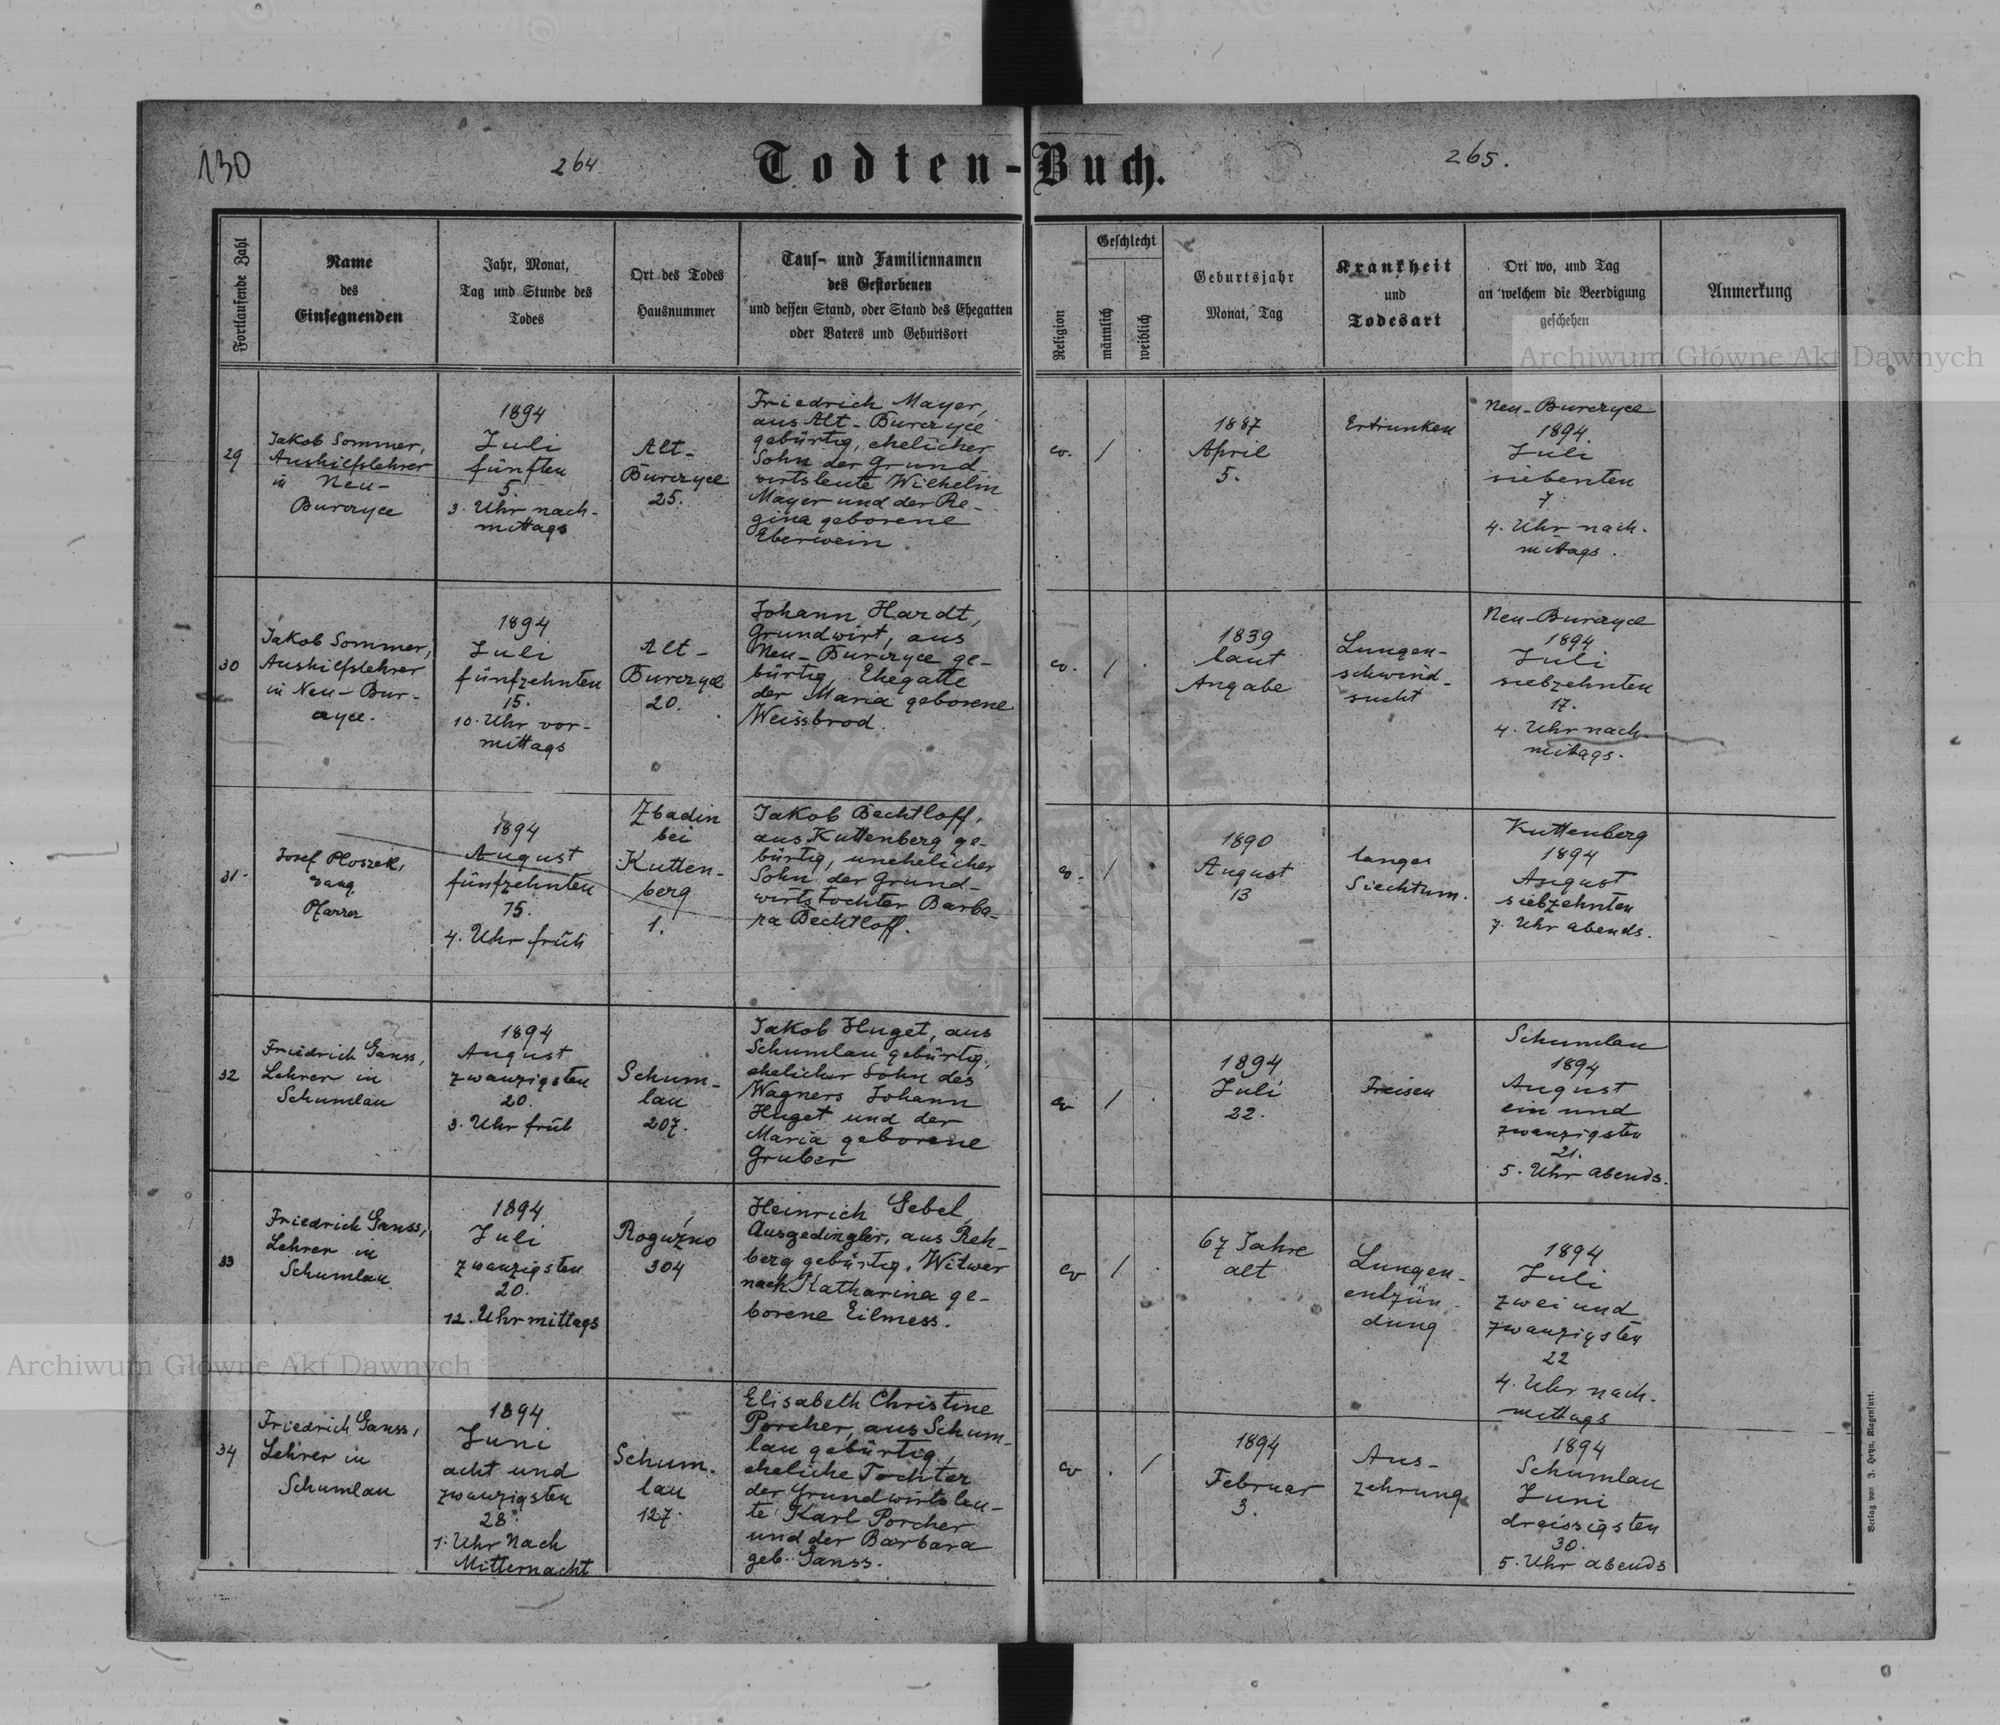 130
264
Todten-Buch.
265.
Fortlaufende Zahl
Name
des
Einsegnenden
Jahr, Monat,
Tag und Stunde des
Todes
Ort des Todes
Hausnummer
Tauf- und Familiennamen
des Gestorbenen
und dessen Stand, oder Stand des Ehegatten
oder Vaters und Geburtsort
Religion
Geschlecht
männlich
weiblich
Geburtsjahr
Monat, Tag
Krankheit
und
Todesart
Ort wo, und Tag
an welchem die Beerdigung
geschehen
Anmerkung
Archiwum Główne Akt Dawnych
29
Jakob Sommer,
Aushilfslehrer
in Neu-
Burczyce
1894
Juli
fünften
5.
3. Uhr nach-
mittags
Alt-
Burczyce
25.
Friedrich Mayer,
aus Alt-Burczyce
gebürtig, ehelicher
Sohn der Grund-
wirtsleute Wilhelm
Mayer und der Re-
gina geborene
Eberwein
ev.
/
1887
April
5.
Ertrunken
Neu-Burczyce
1894.
Juli
siebenten
7.
4. Uhr nach-
mittags.
30
Jakob Sommer,
Aushilfslehrer
in Neu-Bur-
czyce.
1894
Juli
fünfzehnten
15.
10. Uhr vor-
mittags
Alt-
Burczyce
20.
Johann Hardt,
Grundwirt, aus
Neu-Burczyce ge-
bürtig, Ehegatte
der Maria geborene
Weissbrod.
ev.
/
1839
laut
Angabe
Lungen-
schwind-
sucht
Neu-Burczyce
1894
Juli
siebzehnten
17.
4. Uhr nach-
mittags.
31.
Josef Ploszek,
evang.
Pfarrer
1894
August
fünfzehnten
15.
4. Uhr früh
Zbadin
bei
Kutten-
berg
1.
Jakob Bechtloff,
aus Kuttenberg ge-
bürtig, unehelicher
Sohn der Grund-
wirtstochter Barba-
ra Bechtloff.
ev.
/
1890
August
13
langes
Siechtum.
Kuttenberg
1894
August
siebzehnten
7. Uhr abends.
32
Friedrich Ganss,
Lehrer in
Schumlau
1894
August
zwanzigsten
20.
3. Uhr früh
Schum-
lau
207.
Jakob Huget, aus
Schumlau gebürtig,
ehelicher Sohn des
Wagners Johann
Huget und der
Maria geborene
Gruber
ev
/
1894
Juli
22.
Freisen
Schumlau
1894
August
ein und
zwanzigsten
21.
5. Uhr abends.
33
Friedrich Ganss,
Lehrer in
Schumlau
1894
Juli
zwanzigsten
20.
12. Uhr mittags
Roguźno
304
Heinrich Gebel,
Ausgedingler, aus Reh-
berg gebürtig, Witwer
nach Katharina ge-
borene Eilmess.
ev
/
67 Jahre
alt
Lungen-
entzün-
dung
1894
Juli
zwei und
zwanzigsten
22
4. Uhr nach-
mittags
34
Friedrich Ganss,
Lehrer in
Schumlau
1894
Juni
acht und
zwanzigsten
28.
1. Uhr Nach
Mitternacht
Schum-
lau
127.
Elisabeth Christine
Porcher, aus Schum-
lau gebürtig,
eheliche Tochter
der Grundwirtsleu-
te Karl Porcher
und der Barbara
geb. Ganss.
ev
/
1894
Februar
3.
Aus-
zehrung
1894
Schumlau
Juni
dreissigsten
30.
5. Uhr abends
Archiwum Główne Akt Dawnych
Verlag von J. Heyn, Klagenfurt.